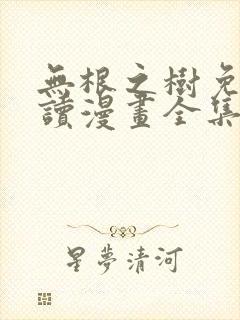 無根之樹免
讀漫畫全集
星夢清河